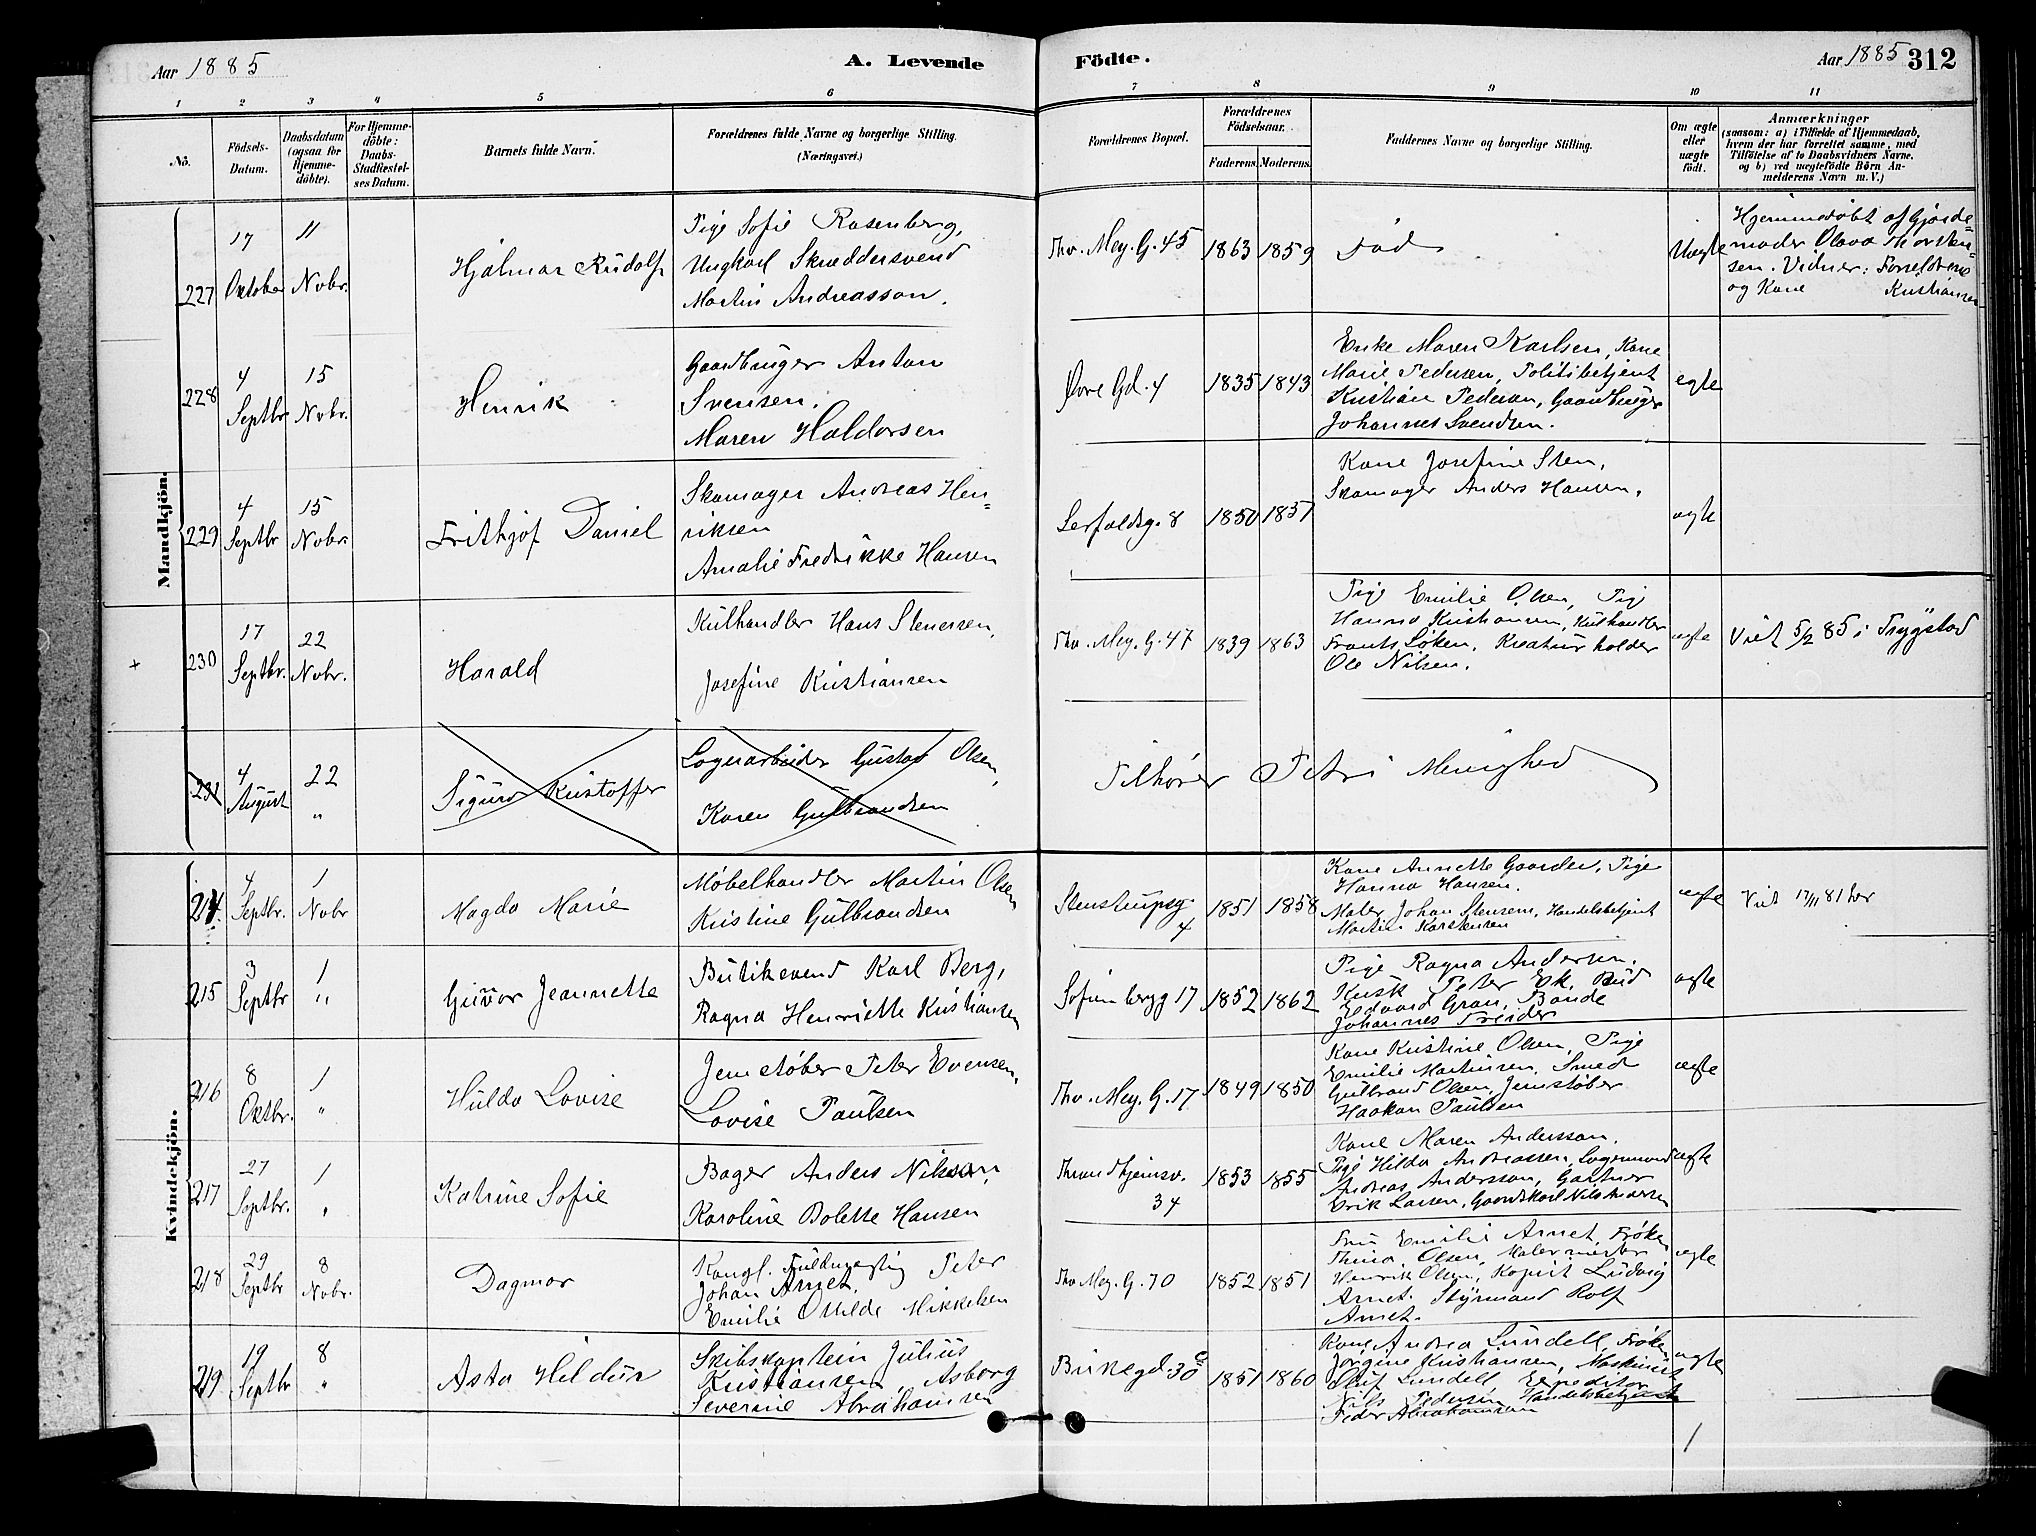 Aar 1885
A. Levende
Födte.
Aar 1885
312
1 2 3 4 5 6
7 8 9 10 11
No.
Fødsels-
Datum.
Daabsdatum
(ogsaa for
Hjemme-
döbte).
For Hjemme-
döbte:
Daabs-
Stadfæstel-
ses Datum.
Barnets fulde Navn.
Forældrenes fulde Navne og borgerlige Stilling.
(Næringsvei.)
Forældrenes Bopæl.
Forældrenes
Födselsaar.
Faderens.
Moderens.
Faddernes Navne og borgerlige Stilling.
Om ægte
eller
uægte
födt.
Anmærkninger
(saasom: a) i Tilfælde af Hjemmedaab,
hvem der har forrettet samme, med
Tilföielse af to Daabsvidners Navne,
og b) ved uægtefödte Börn An-
melderens Navn m. V.)
Mandkjön.
227
17
Oktober
11
Novbr.
Hjalmar Rudolf
Pige Sofie Rosenberg,
Ungkarl Skræddersvend
Martin Andreasson.
Thv. Mey. G. 45
1863
1859
Død
Uægte
Hjemmedöbt af Gjorde=
moder Olava Thorsten=
sen. Vidner: Forældrene
og Kone Kristiansen
228
4
Septbr
15
Novbr.
Henrik
Gaardbruger Anton
Svensen.
Maren Haldorsen
Gd. 4
1835
1843
Enke Maren Karlsen, Kone
Marie Pedersen, Politibetjent
Kristian Pedersen, Gaardbruger
Johannes Svendsen.
egte
229
4
Septbr
15
Novbr
Frithjof Daniel
Skomager Andreas Hen=
riksen
Amalie Fredrikke Hansen
Lerfaldsg. 8
1850
1851
Kone Josefine Sten,
Skomager Anders Hansen.
ægte
+
230
17
Septbr.
22
Novbr.
Harald
Kulhandler Hans Stenersen,
Josefine Kristiansen
Thv. Mey. G. 47
1839
1863
Pige Emilie Olsen, Pige
Hanna Kristiansen, Kulhandler
Frants Löken, Kreaturholder
Ole Nilsen.
ægte
Viet 5/2 85 i Trygstad
231
4
August
22
"
Sigurd Kristoffer
Lognarbeider Gustav Olsen,
Karen Gulbrandsen
Tilhører Petri Menighed
Kvindekjön.
214
4
Septbr.
1
Novbr
Magda Marie
Møbelhandler Martin Olsen
Kristine Gulbrandsen
Stenstrupsg.
4
1851
1858
Kone Annette Gaarder, Pige
Hanna Hansen.
Maler Johan Stensen, Handelsbetjent
Martin Karstensen
ægte
Viet 17/11 81 her
215
3
Septbr
1
"
Gunvor Jeannette
Butiksvend Karl Berg,
Ragna Henriette Kristiansen
Sofienbergg 17
1852
1862
Pige Ragna Andersen.
Kusk Peter Ek, Bud
Edvard Gran, Bonde
Johannes Treider
ægte
216
8
Oktbr.
1
"
Hulda Lovise
Jernstøber Peter Evensen,
Lovise Paulsen
Thv. Mey. G. 17
1849
1850
Kone Kristine Olsen, Pige
Emilie Martinsen, Smed
Gulbrand Olsen, Jernstøber
Haakon Paulsen
ægte
217
27
Septbr.
1
"
Katrine Sofie
Bager Anders Nilsson,
Karoline Bolette Hansen
Throndhjemsv.
34
1853
1855
Kone Maren Andersson.
Pige Hilda Andreassen, Lagermand
Andreas Andersson, Gartner
Erik Larsen, Gaardskarl Nils Andersen
ægte
218
29
Septbr
8
Novbr.
Dagmar
Kongl. Fuldmægtig Peter
Johan Arnet.
Emilie Othilde Mikkelsen
Thv Mey. G. 70
1852
1851
Fru Emilie Arnet, Frøken
Thina Olsen, Malermester
Henrik Olsen, Kopist Ludvig
Arnet. Styrmand Rolf
Arnet.
ægte
219
19
Septbr
8
"
Asta Hildur
Skibskaptein Julius
Kristiansen Asborg
Severine Abrahamsen
Birkegd. 30 c
1851
1860
Kone Andrea Lundell, Frøken
Jørgine Kristiansen, Maskinist
Oluf Lundell Expeditør
Nils Pedersen Handelsbetjent
Peder Abrahamsen
ægte
1